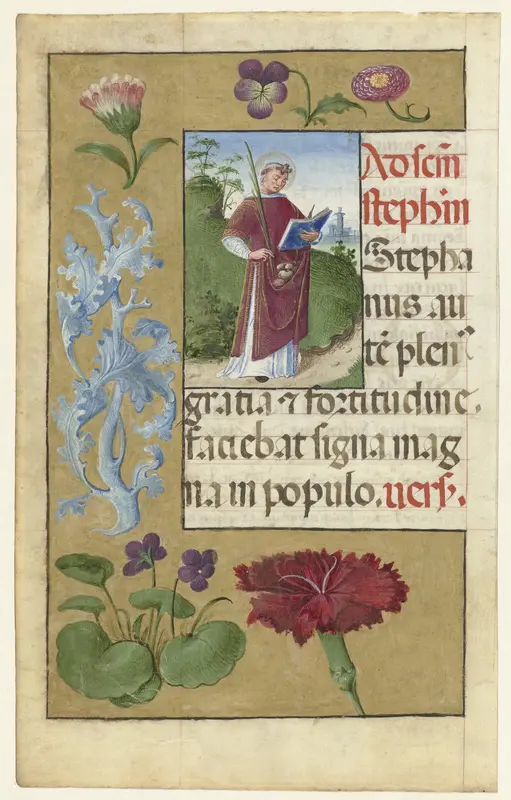 Ad scm̄
stephm̄
Stepha
nus au
tē plen⁹
gratia ⁊ fortitudine.
faciebat signa mag
na in populo. vers.